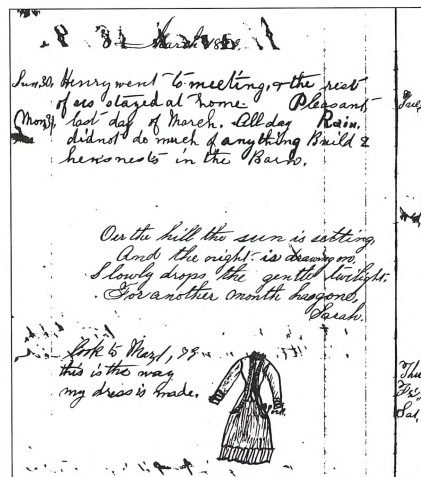 March
Sun. 30. Henry went to meeting, & the rest
of us stayed at home Pleasant
Mon 31, last day of March. All day Rain.
did not do much of anything Build 2
hens nests in the Barn.
Oer the hill the sun is setting,
And the night is drawing on,
Slowly drops the gentle twilight.
For another month has gone,
Sarah.
Look to May 1, 79
this is the way
my dress is made.
Thu
Fri
Sat,